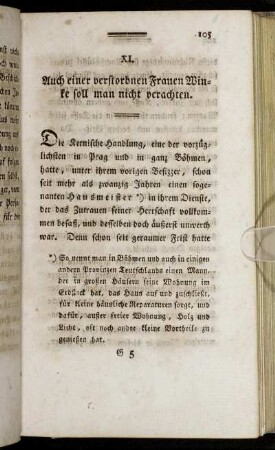 105
XI.
Auch einer verstorbnen Frauen Win-
ke soll man nicht verachten.
Die Kernische Handlung, eine der vorzüg-
lichsten in Prag und in ganz Böhmen,
hatte, unter ihrem vorigen Besizzer, schon
seit mehr als zwanzig Jahren einen soge-
nanten Hausmeister *) in ihrem Dienste,
der das Zutrauen seiner Herrschaft vollkom-
men besaß, und desselben doch äußerst unwerth
war. Denn schon seit geraumer Frist hatte
*) So nennt man in Böhmen und auch in einigen
andern Provinzen Teutschlands einen Mann,
der in großen Häusern seine Wohnung im
Erdstock hat, das Haus auf und zuschließt,
für kleine häusliche Reparaturen sorgt, und
dafür, ausser freier Wohnung, Holz und
Licht, oft noch andre kleine Vortheile zu
genießen hat.
G 5